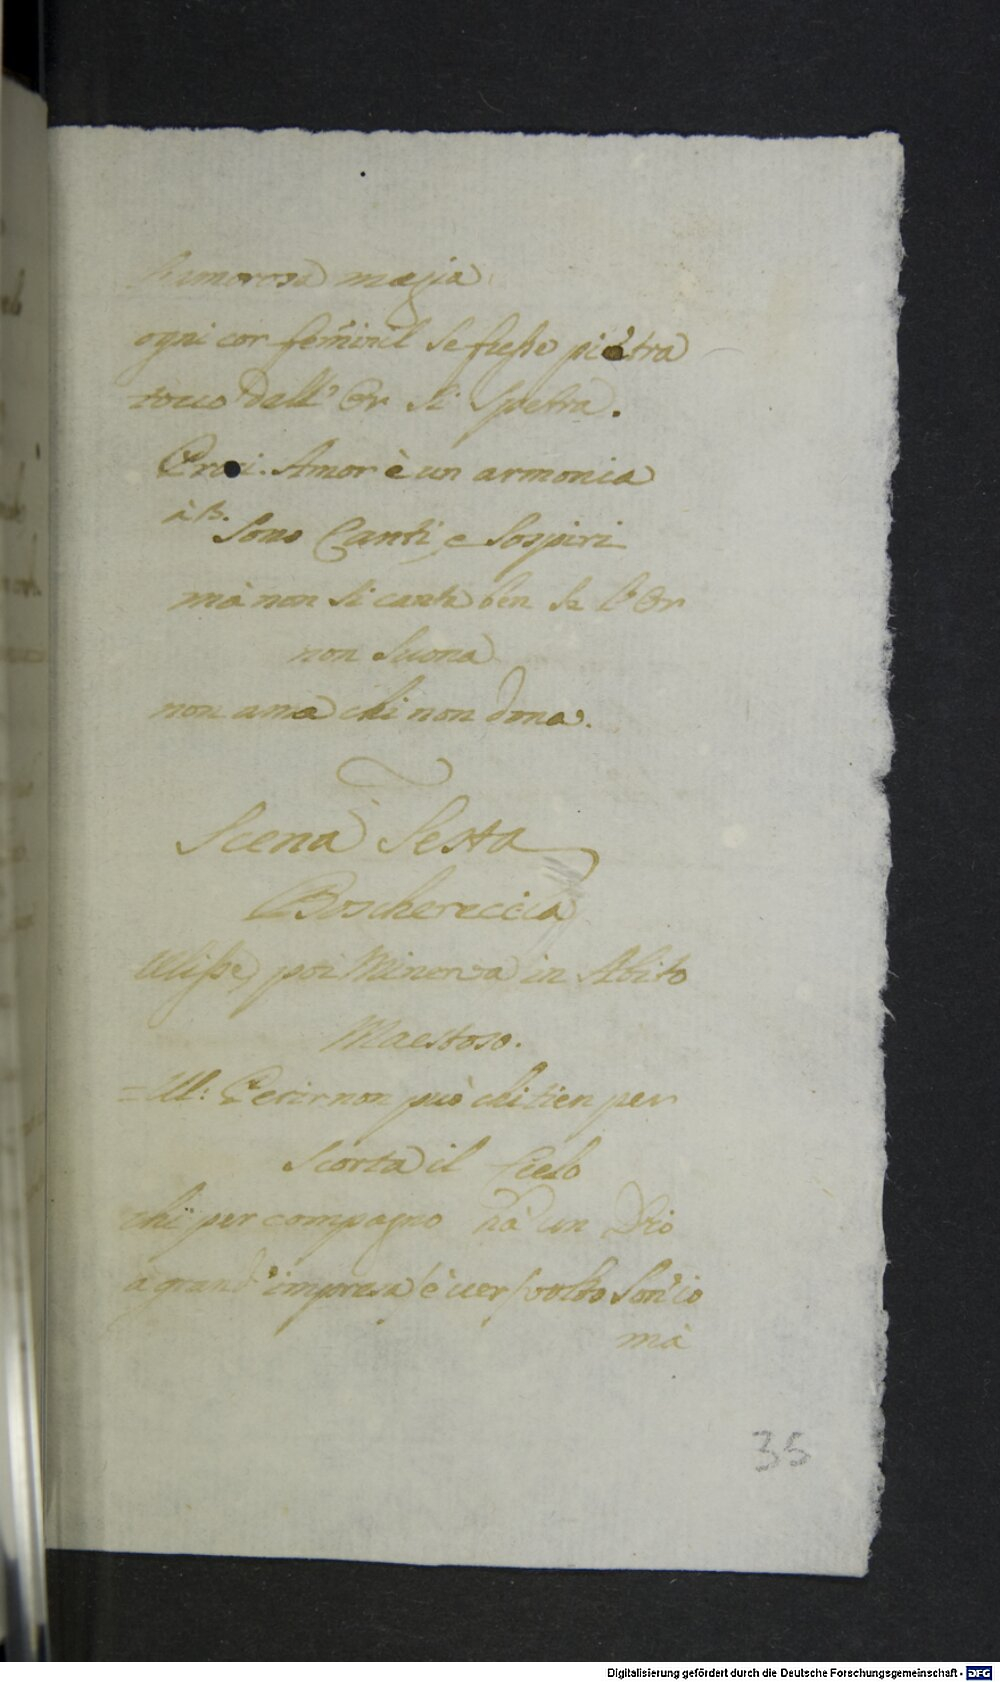 amorosa magia
ogni cor feminil se fusse pietra
tocco dall' Or si spetra.
Proci. Amor è un armonia
à 3. Sono Canti, e Sospiri
mà non si canta ben se l'Or
non Suona
non ama chi non dona.
Scena Sesta
Boschereccia
Ulisse, poi Minerva in Abito
Maestoso.
=Ul: Perir non può chi tien per
scorta il Cielo
chi per compagno hà un Dio
a grand' impresa è ver volto Son'io
mà
35
Digitalisierung gefördert durch die Deutsche Forschungsgemeinschaft - DFG